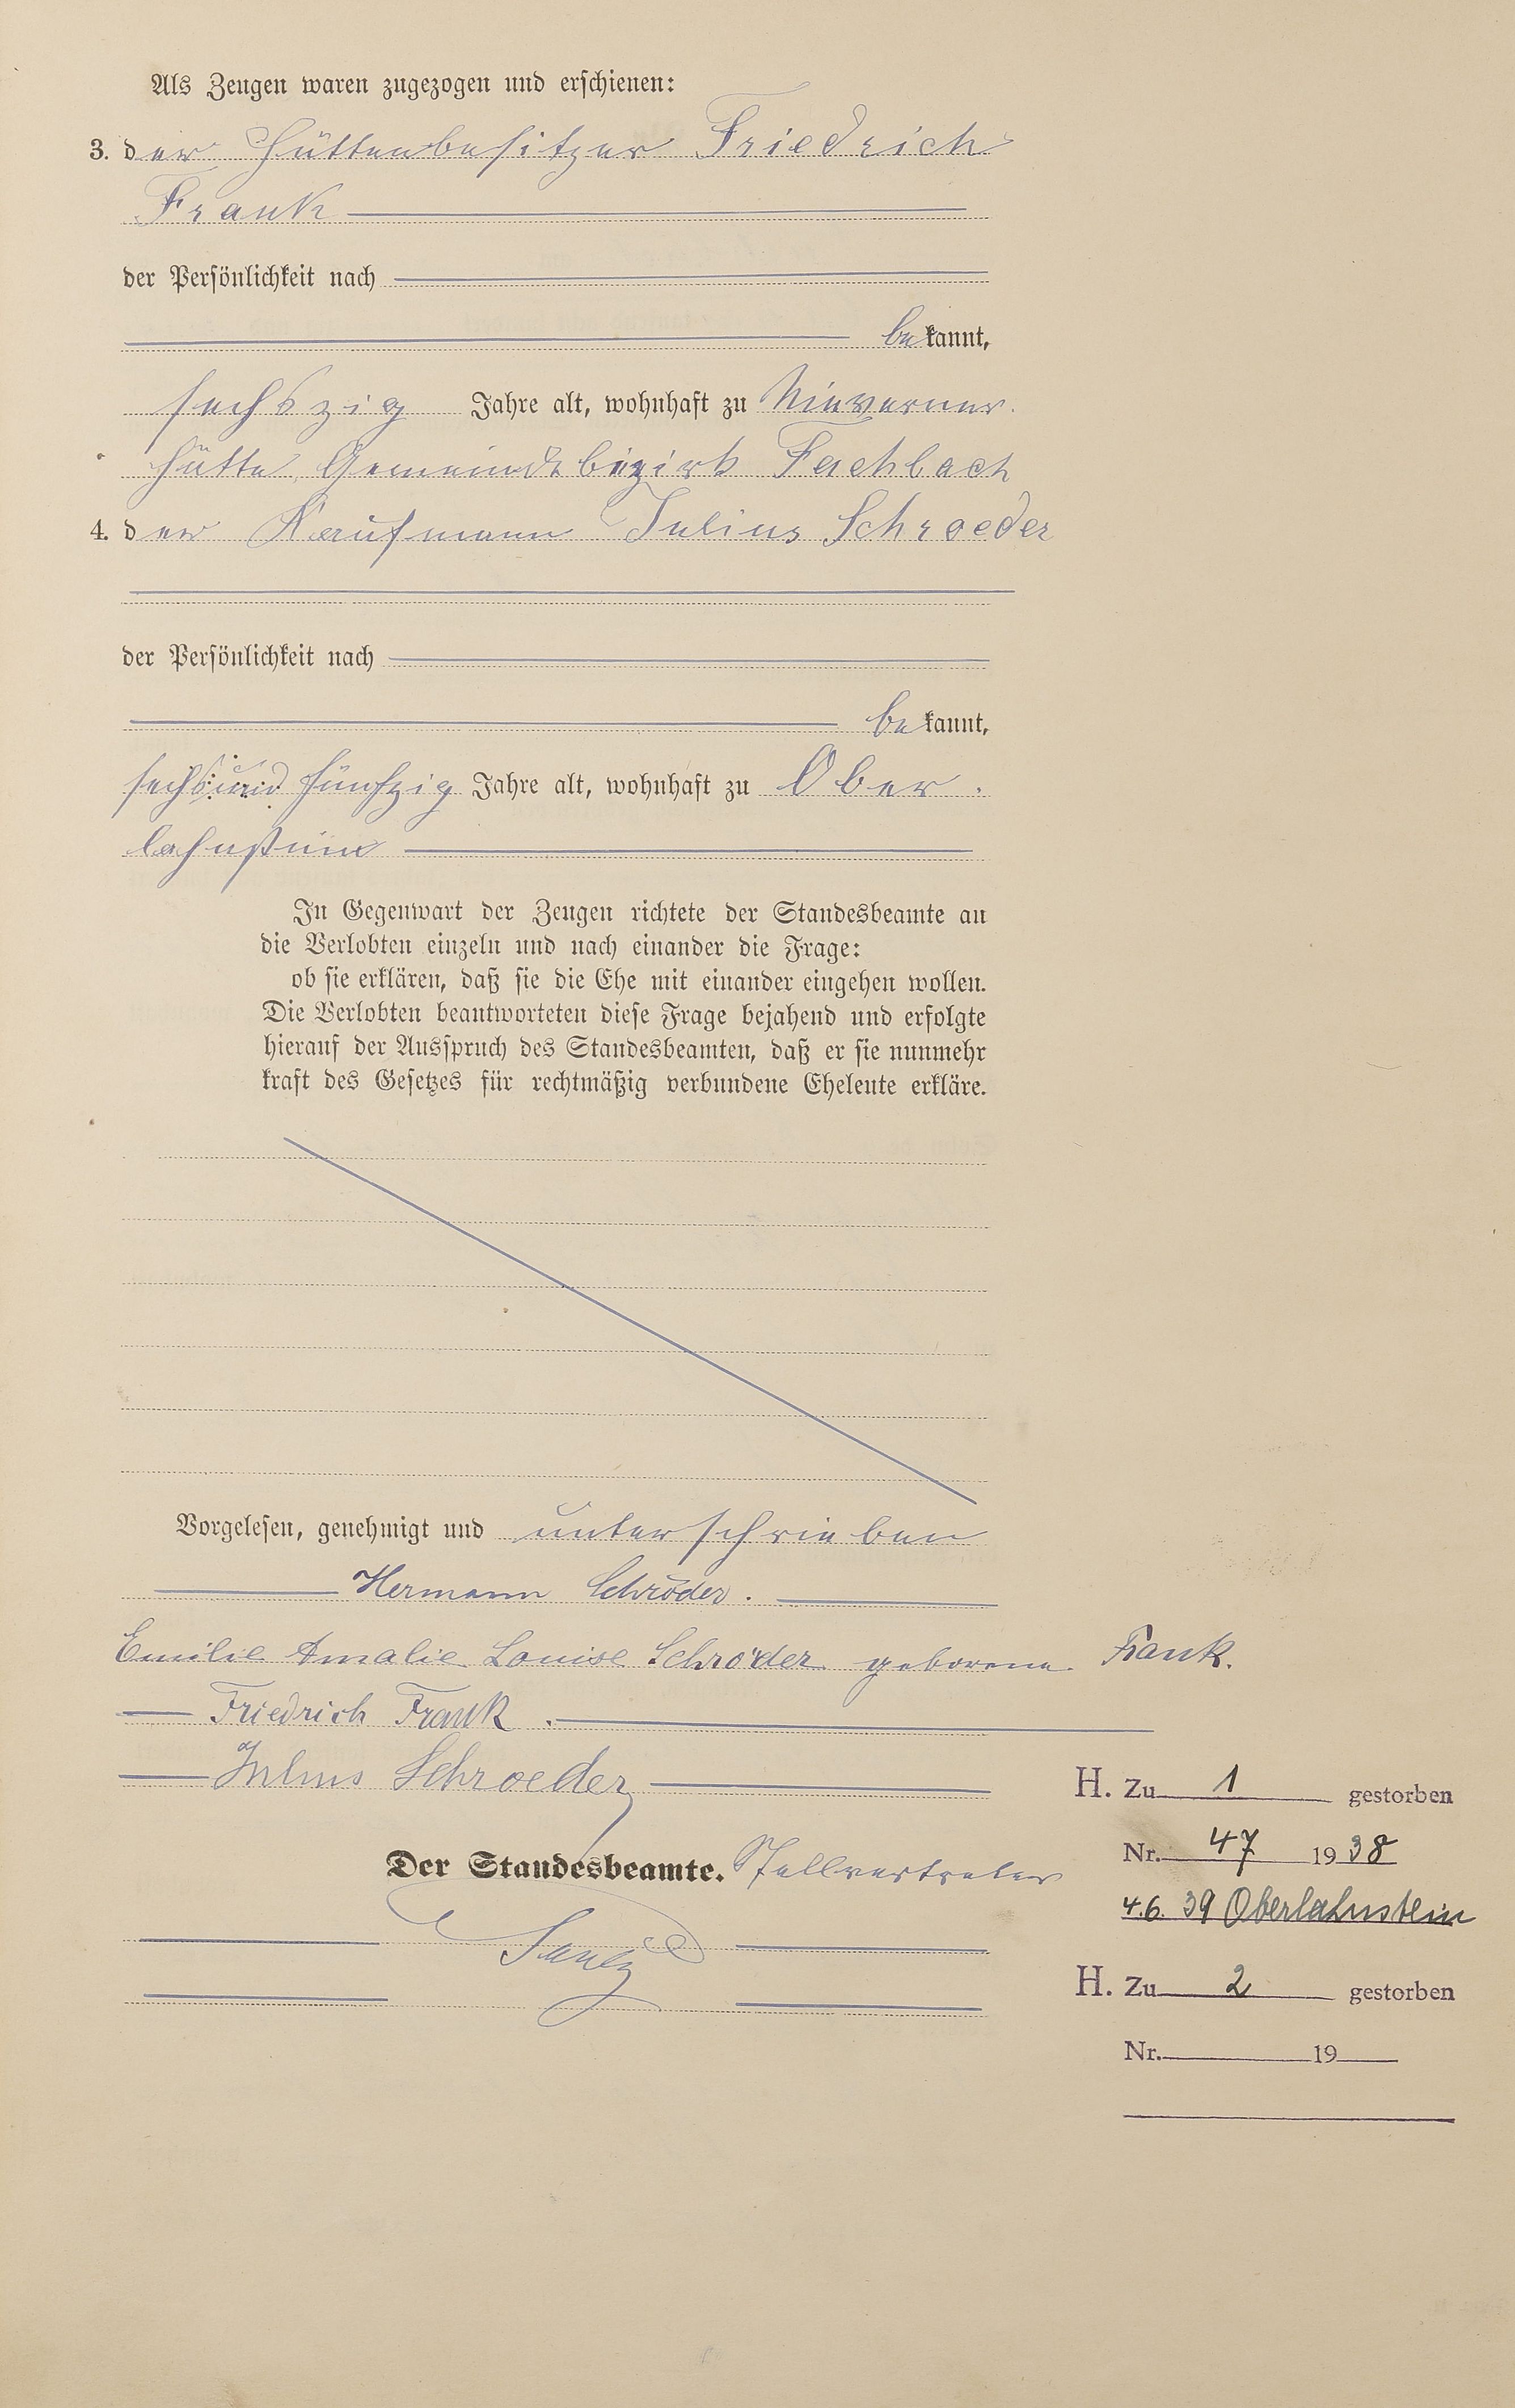 Als Zeugen waren zugezogen und erschienen:
3. der Hüttenbesitzer Friedrich
Frank
der Persönlichkeit nach
bekannt,
sechszig Jahre alt, wohnhaft zu Nieverner-
hütte, Gemeindebezirk Fachbach
4. der Kaufmann Julius Schroeder
der Persönlichkeit nach
bekannt,
sechsund fünfzig Jahre alt, wohnhaft zu Ober-
lahnstein
In Gegenwart der Zeugen richtete der Standesbeamte an
die Verlobten einzeln und nach einander die Frage:
ob sie erklären, daß sie die Ehe mit einander eingehen wollen.
Die Verlobten beantworteten diese Frage bejahend und erfolgte
hierauf der Ausspruch des Standesbeamten, daß er sie nunmehr
kraft des Gesetzes für rechtmäßig verbundene Eheleute erkläre.
Vorgelesen, genehmigt und unterschrieben
Hermann Schröder.
Emilie Amalie Louise Schröder geborene Frank.
Friedrich Frank.
Julius Schroeder
Der Standesbeamte. Stellvertreter
H. Zu 1 gestorben
Nr. 47 1938
4.6. 39 Oberlahnstein
H. Zu 2 gestorben
Nr. 19